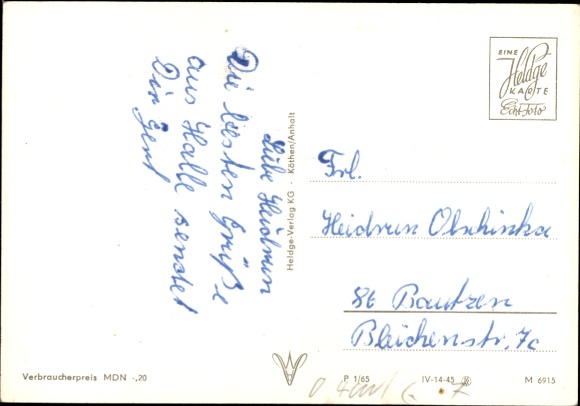 Liebe Heidrun
Die besten Grüße
aus Halle sendet
Dir Gerd
Heldge-Verlag KG · Köthen/Anhalt
EINE
Heldge
KARTE
Echt Foto
Frl.
Heidrun Olschinka
86 Bautzen
Bleichenstr. 7c
Verbraucherpreis MDN -,20
P 1/65
IV-14-45
M 6915